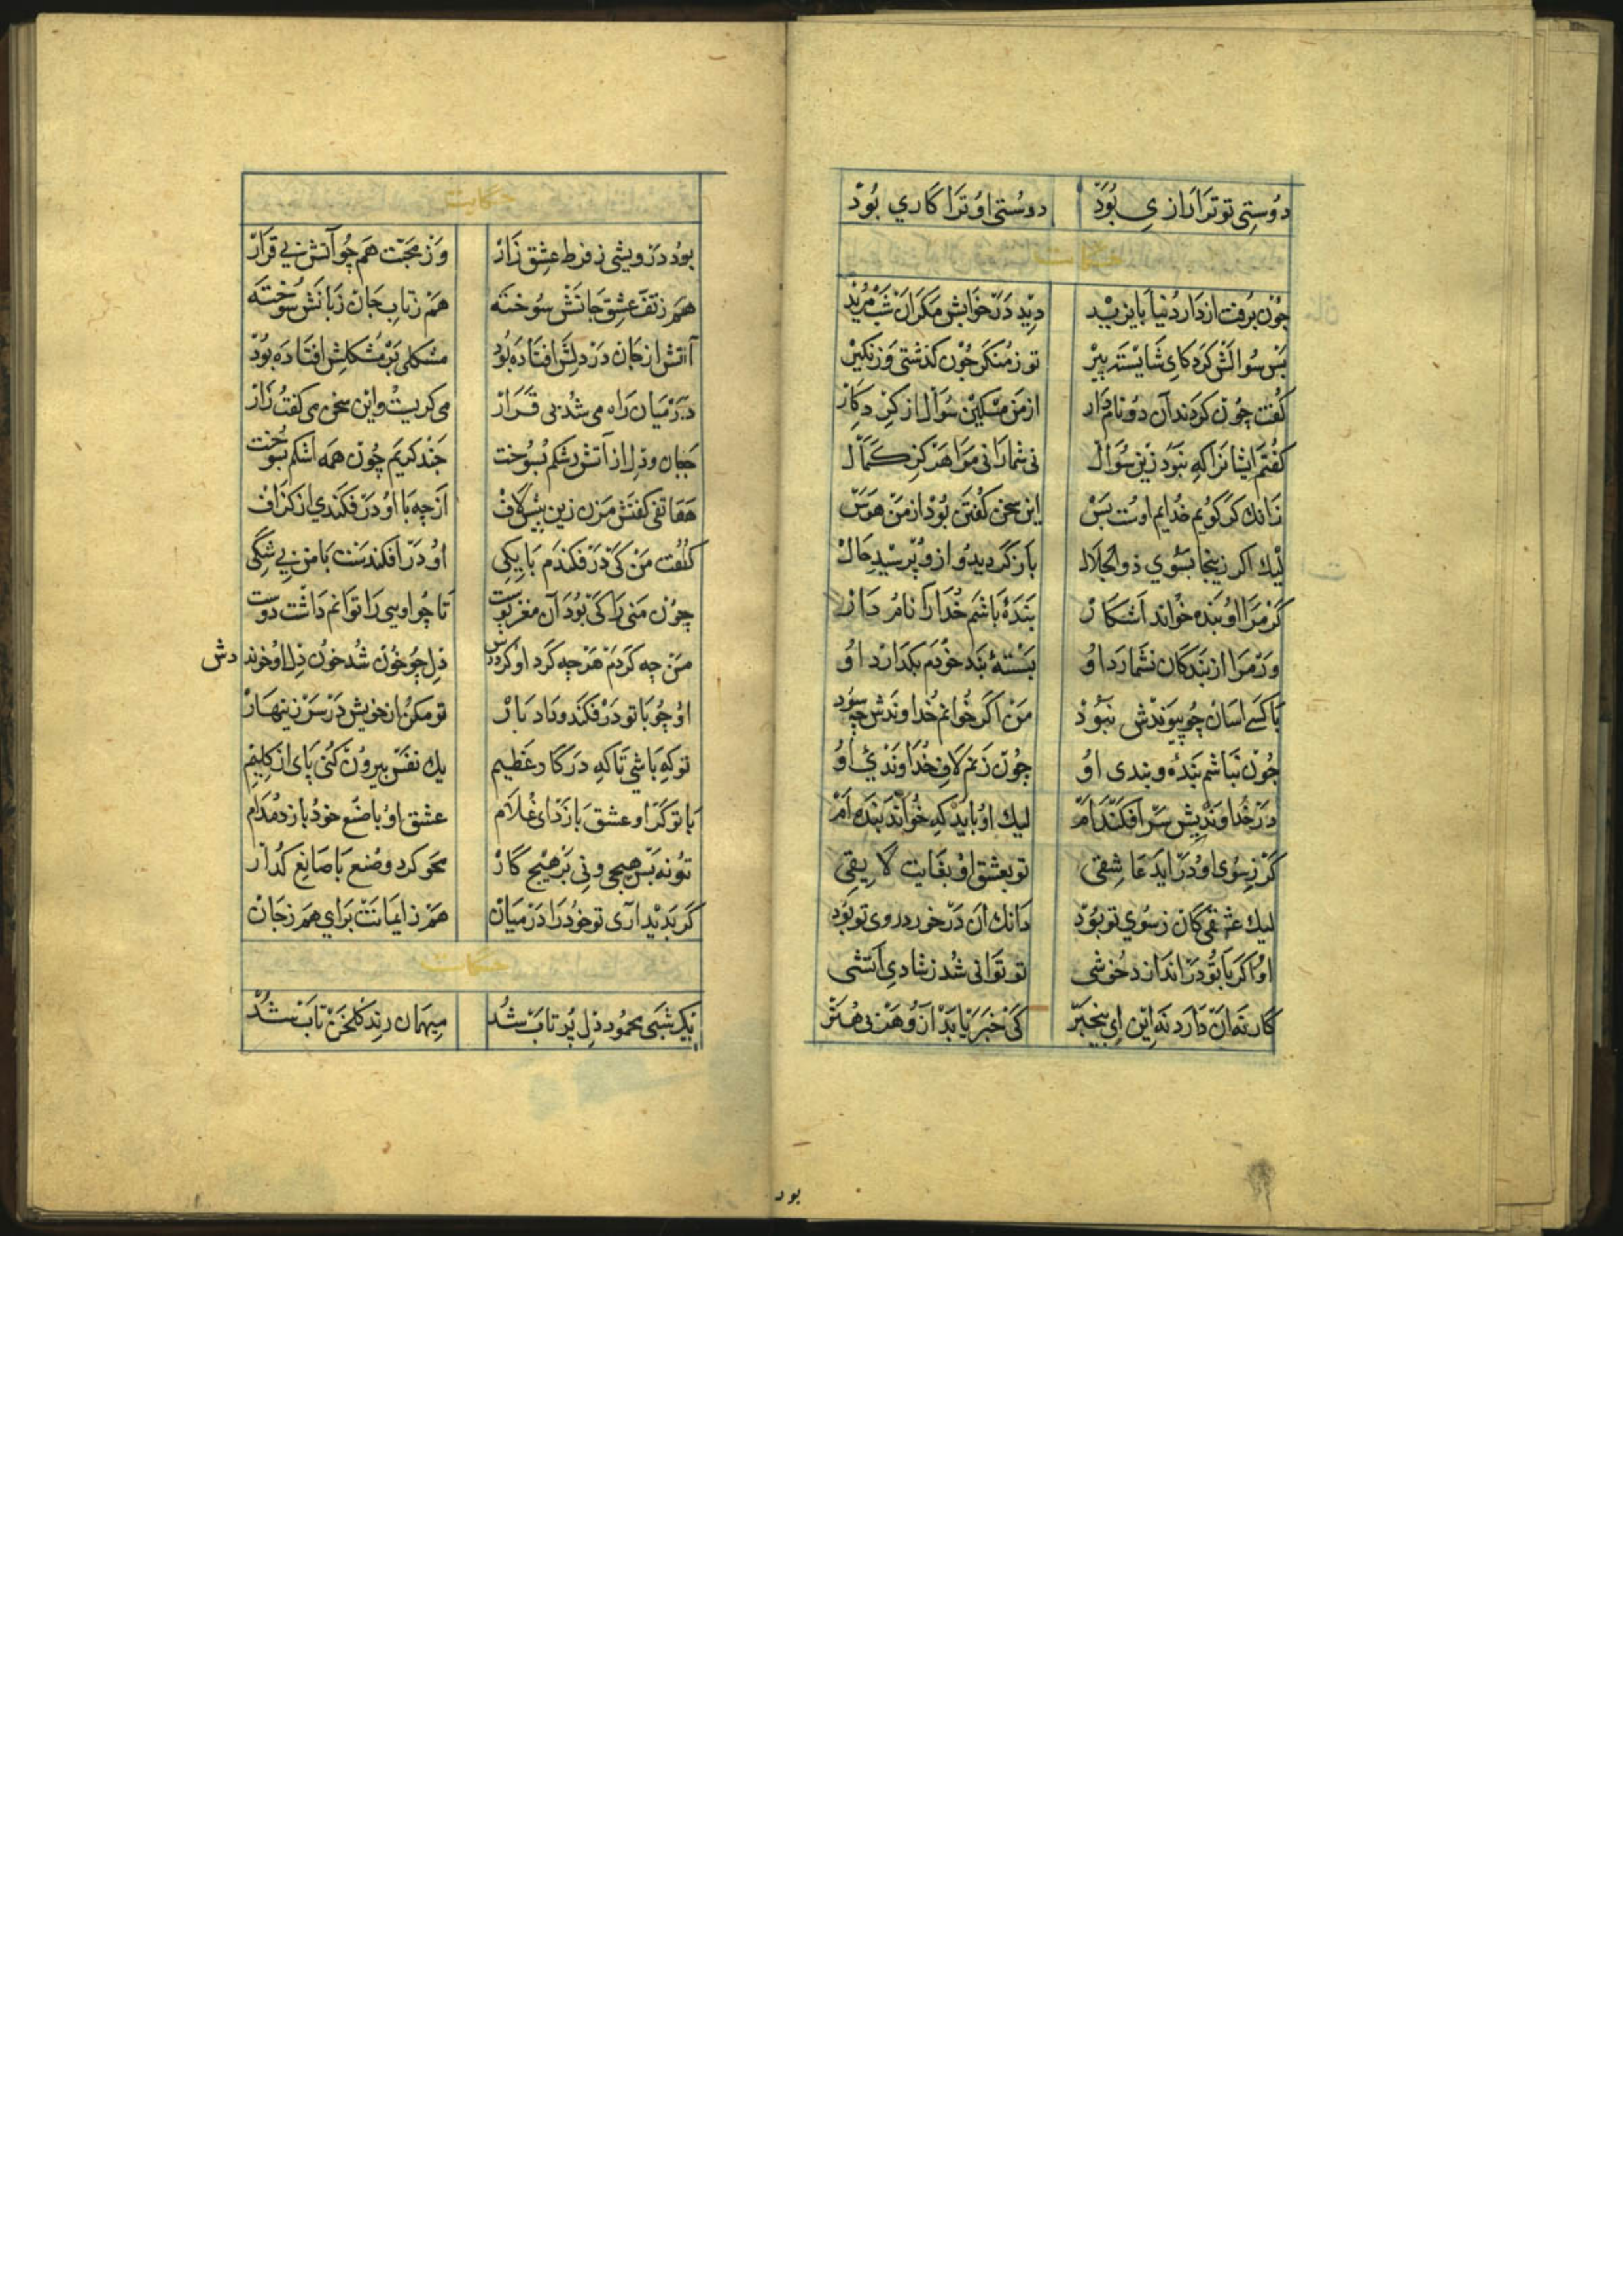 دوستی تو ترا رازی بود دوستی او ترا کاری بود
حکایت
چون برفت از دار دنیا بایزید دید در خوابش مکر ان شب مرید
بس سوالش کرد کای شایسته بیر تو ز منکر چون کذشتی وز نکیر
کفت چون کردند آن دو نامدار از من مسکین سوال از کردکار
کفتم ایشانرا که نبود زین سوال نی شما را نی مرا هرکز کمال
زانک کر کویم خدایم اوست بس این سخن کفتن بود از من هوس
لیک اکر زینجا بسوی ذو الجلال باز کردید و ازو پرسید حال
کر مرا او بنده خواند اشکار بندهٔ باشم خدا را نامدار
ور مرا از بندکان نشمارد او بستهٔ بند خودم بکذارد او
با کسی اسان چو پیوندش نبود من اکر خوانم خداوندش چه سود
چون نباشم بنده و بندی او چون زنم لاف خداوندی او
در خداوندیش سر افکنده‌ام لیک او باید که خواند بنده‌ام
کر ز سوی او در اید عاشقی تو بعشق او بغایت لایقی
لیک عشقی کان ز سوی تو بود دانک ان در خورد روی تو بود
او اکر با تو در اندازد خوشی تو توانی شد ز شادی آتشی
کار نه ان دارد نه این ای بیخبر کی خبر یابد ازو هر بی هنر
حکایت
بود درویشی ز فرط عشق زار وز محبت هم چو آتش بی قرار
هم ز تف عشق جانش سوخته هم ز تاب جان زبانش سوخته
آتش از جان در دلش افتاده بود مشکلی بر مشکلش افتاده بود
در میان راه می شد بی قرار می کریست و این سخن می کفت زار
جان و دل از آتش رشکم بسوخت چند کریم چون همه اشکم بسوخت
هاتفی کفتش مزن زین بیش لاف از چه با او در فکندی از کزاف
کفت من کی در فکندم با یکی او در افکندست با من بی شکی
چون منی را کی بود آن مغز پوست تا چو اویی را توانم داشت دوست
من چه کردم هرچه کرد او کرد و بس دل چو خون شد خون دل او خورد
او چو با تو در فکند و داد بار تو مکن از خویش در سر زینهار
تو که باشی تا که در کار عظیم یک نفس بیرون کنی پای از کلیم
با تو کر او عشق بازد ای غلام عشق او با صنع خود بازد مدام
تو نه بس هیچی و نی بر هیچ کار محو کرد و صنع با صانع کذار
کر بدید آری تو خود را در میان هم ز ایمانت برای هم ز جان
حکایت
یک شبی محمود دل پر تاب شد میهمان رند کلخن تاب شد
بود